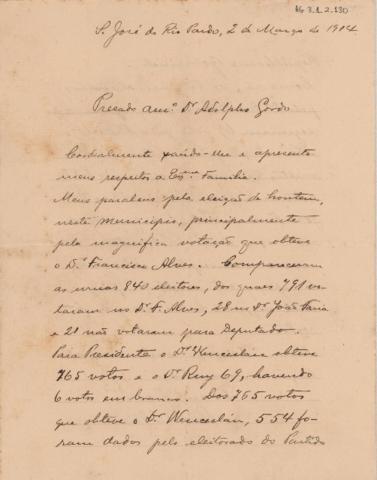 AG 3.1.2.130
S. José do Rio Pardo, 2 de Março de 1914.
Prezado am.º Dr. Adolpho Gordo
Cordialmente saúdo-lhe e apresento
meus respeitos a Ex.ma Familia.
Meus parabens pela eleição de hontem,
neste municipio, principalmente
pela magnifica votação que obteve
o Dr. Francisco Alves. Compareceram
as urnas 840 eleitores, dos quaes 791 vo-
taram no Dr. F. Alves, 28 no Dr. João Faria
e 21 não votaram para Deputado.
Para Presidente o Dr. Wenceslau obteve
765 votos e o Dr. Ruy 69, havendo
6 votos em branco. Dos 765 votos
que obteve o Dr. Wenceslau, 554 fo-
ram dados pelo eleitorado do Partido